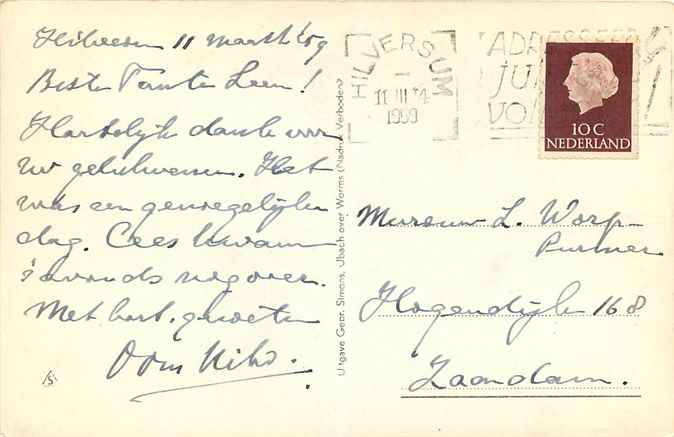 Hilversum 11 maart '59
Beste Tante Leen!
Hartelijk dank voor
uw gelukwensen. Het
was een genoegelijke
dag. Cees kwam
's avonds nog over.
Met hart. groeten
Oom
HILVERSUM
11 III 14
1959
10 C
NEDERLAND
Uitgave Gebr. Simons, Ubach over Worms (Nadruk Verboden)
Mevrouw L. Worp-
Purmer
Hogendijk 168
Zaandam.